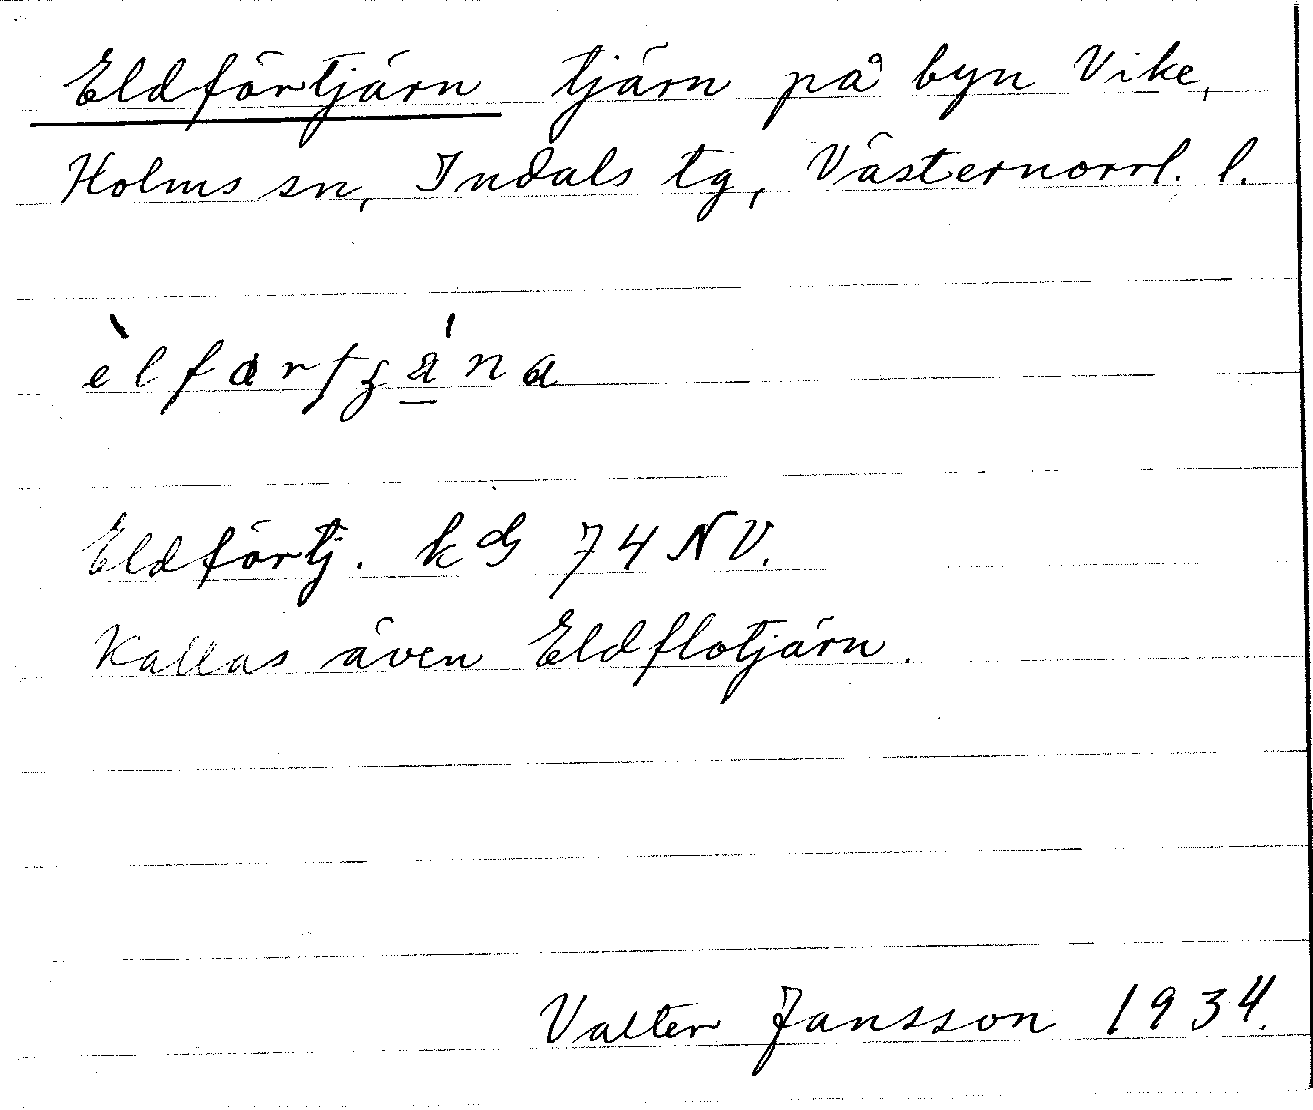 Eldförtjärn tjärn på byn Vike,
Holms sn, Indals tg, Västernorrl. l.
Eldförtj. kbl 74 NV.
Kallas även Eldflotjärn.
Valter Jansson 1934.